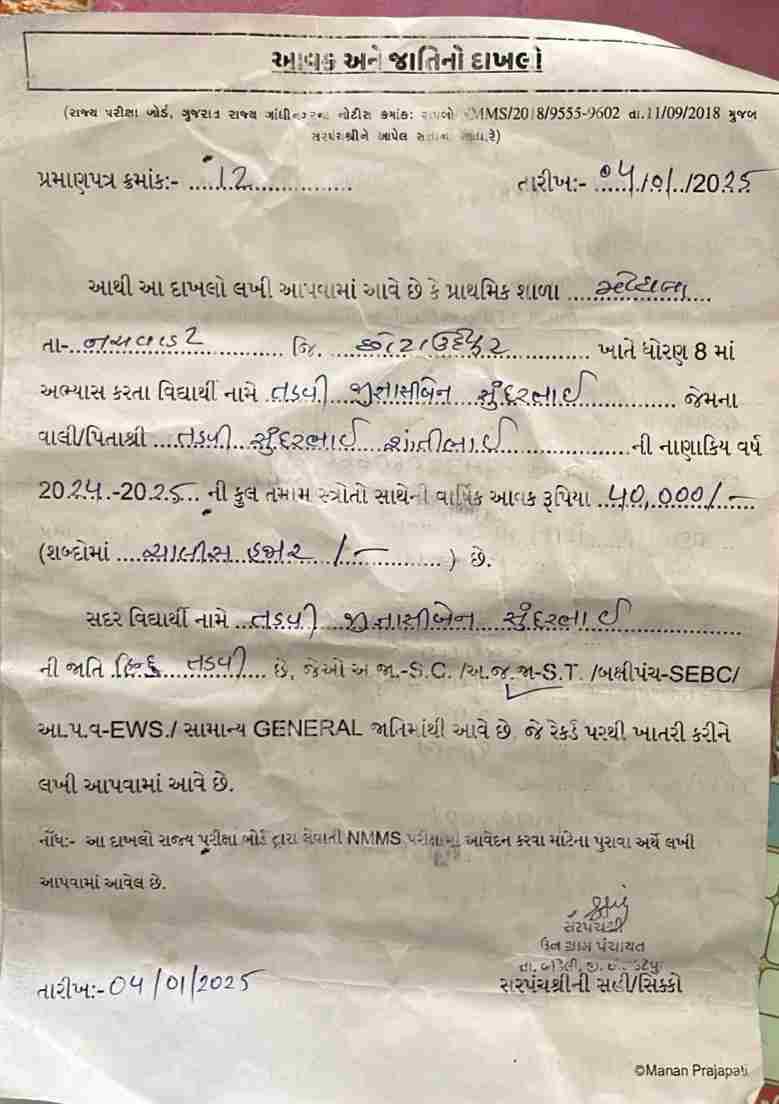 આવક અને જાતિનો દાખલો
(રાજ્ય પરીક્ષા બોર્ડ, ગુજરાત રાજ્ય ગાંધીનગરના નોટીસ ક્રમાંક: રાપબો NMMS/2018/9555-9602 તા.11/09/2018 મુજબ
સરપંચશ્રીને આપેલ સત્તાના આધારે)
પ્રમાણપત્ર ક્રમાંક:- 12 તારીખ:- 04/01/2025
આથી આ દાખલો લખી આપવામાં આવે છે કે પ્રાથમિક શાળા
તા- જિ. છોટાઉદેપુર ખાતે ધોરણ 8 માં
અભ્યાસ કરતા વિદ્યાર્થી નામે તડવી જીનાસીબેન સુંદરભાઈ જેમના
વાલી/પિતાશ્રી તડવી સુંદરભાઈ શાંતીલાઈ ની નાણાકિય વર્ષ
2024-2025 ની કુલ તમામ સ્ત્રોતો સાથેની વાર્ષિક આવક રૂપિયા 40,000/-
(શબ્દોમાં ચાલીસ હજાર /- ) છે.
સદર વિદ્યાર્થી નામે તડવી જીનાસીબેન સુંદરભાઈ
ની જાતિ હિન્દુ તડવી છે, જેઓ અ.જા.-S.C. /અ.જ.જા-S.T. /બક્ષીપંચ-SEBC/
આ.પ.વ-EWS./ સામાન્ય GENERAL જાતિમાંથી આવે છે. જે રેકર્ડ પરથી ખાતરી કરીને
લખી આપવામાં આવે છે.
નોંધ:- આ દાખલો રાજ્ય પરીક્ષા બોર્ડ દ્વારા લેવાતી NMMS પરીક્ષામાં આવેદન કરવા માટેના પુરાવા અર્થે લખી
આપવામાં આવેલ છે.
સરપંચશ્રી
ઉન ગ્રામ પંચાયત
તા. બોડેલી, જી. છોટાઉદેપુર
તારીખ:- 04/01/2025 સરપંચશ્રીની સહી/સિક્કો
©Manan Prajapati